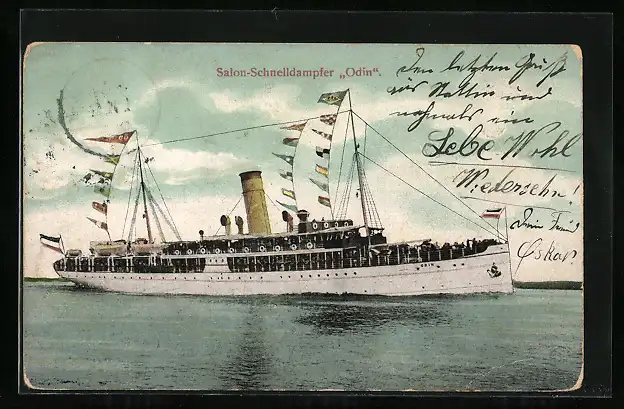 Salon-Schnelldampfer „Odin“.
Den letzten Gruß
aus Stettin und
nochmals ein
Lebe Wohl
Wiedersehn!
Dein Freund
Oskar
ODIN